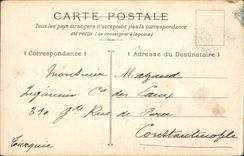 CARTE POSTALE
Tous les pays étrangers n'acceptent pas la correspondance
au recto (se renseigner à la poste)
Correspondance
Adresse du Destinataire
Monsieur Mazaud
Ingénieur Cie des Eaux
310 gde Rue de Péra
Constantinople
Turquie